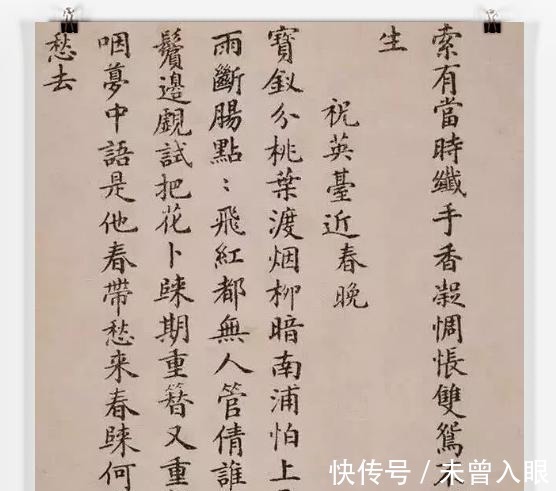 索有當時纖手香凝惆悵雙鴛
生
祝英臺近春晚
寶釵分桃葉渡烟柳暗南浦怕上
雨斷腸點〻飛紅都無人管倩誰
鬢邊覷試把花卜歸期重簪又重
咽夢中語是他春帶愁來春歸何
愁去
快传号 / 未曾入眼